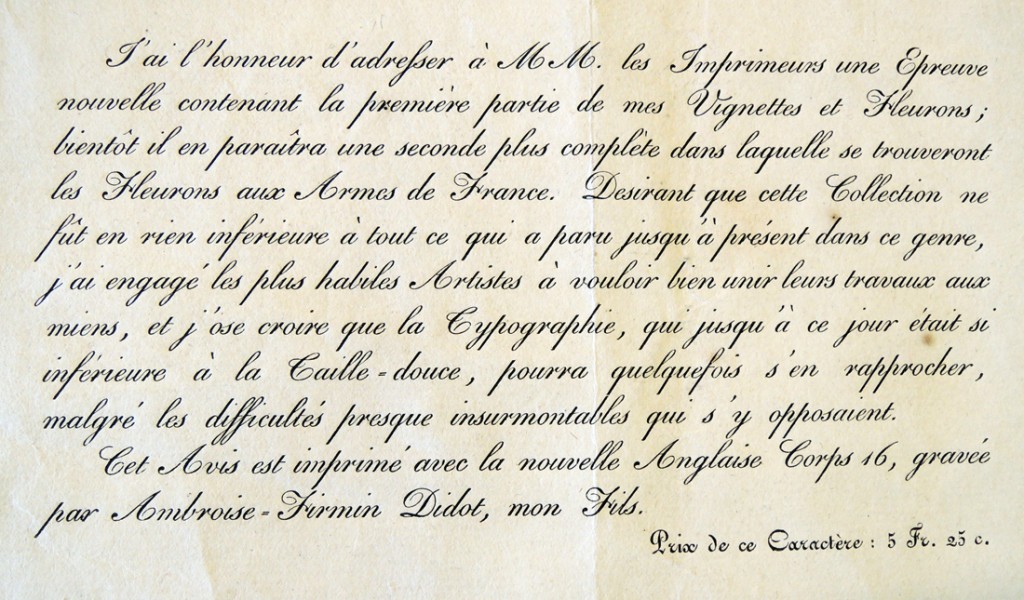 J'ai l'honneur d'adresser à MM. les Imprimeurs une Epreuve
nouvelle contenant la première partie de mes Vignettes et Fleurons;
bientôt il en paraîtra une seconde plus complète dans laquelle se trouveront
les Fleurons aux Armes de France. Desirant que cette Collection ne
fût en rien inférieure à tout ce qui a paru jusqu'à présent dans ce genre,
j'ai engagé les plus habiles Artistes à vouloir bien unir leurs travaux aux
miens, et j'ose croire que la Typographie, qui jusqu'à ce jour était si
inférieure à la Taille-douce, pourra quelquefois s'en rapprocher,
malgré les difficultés presque insurmontables qui s'y opposaient.
Cet Avis est imprimé avec la nouvelle Anglaise Corps 16, gravée
par Ambroise-Firmin Didot, mon Fils.
Prix de ce Caractère : 5 Fr. 25 c.